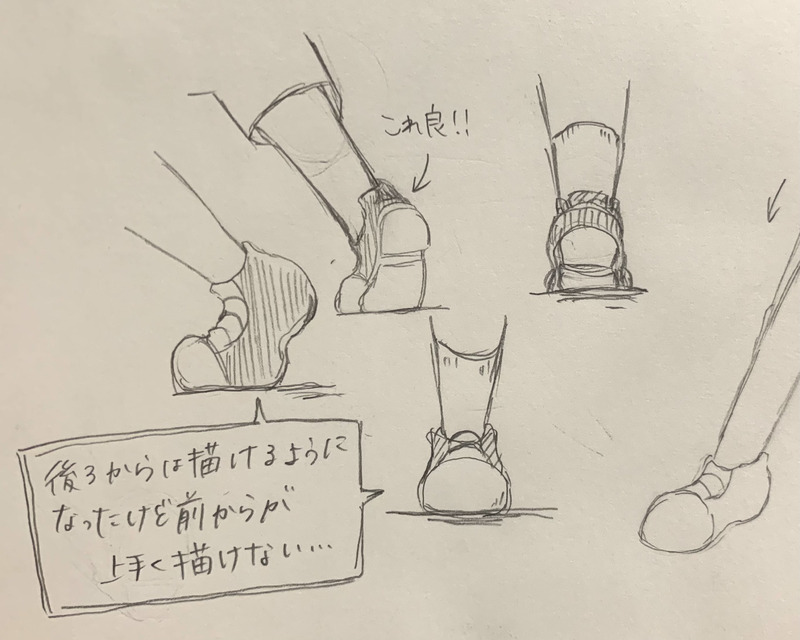 これ良!!
後ろからは描けるように
なったけど前からが
上手く描けない…